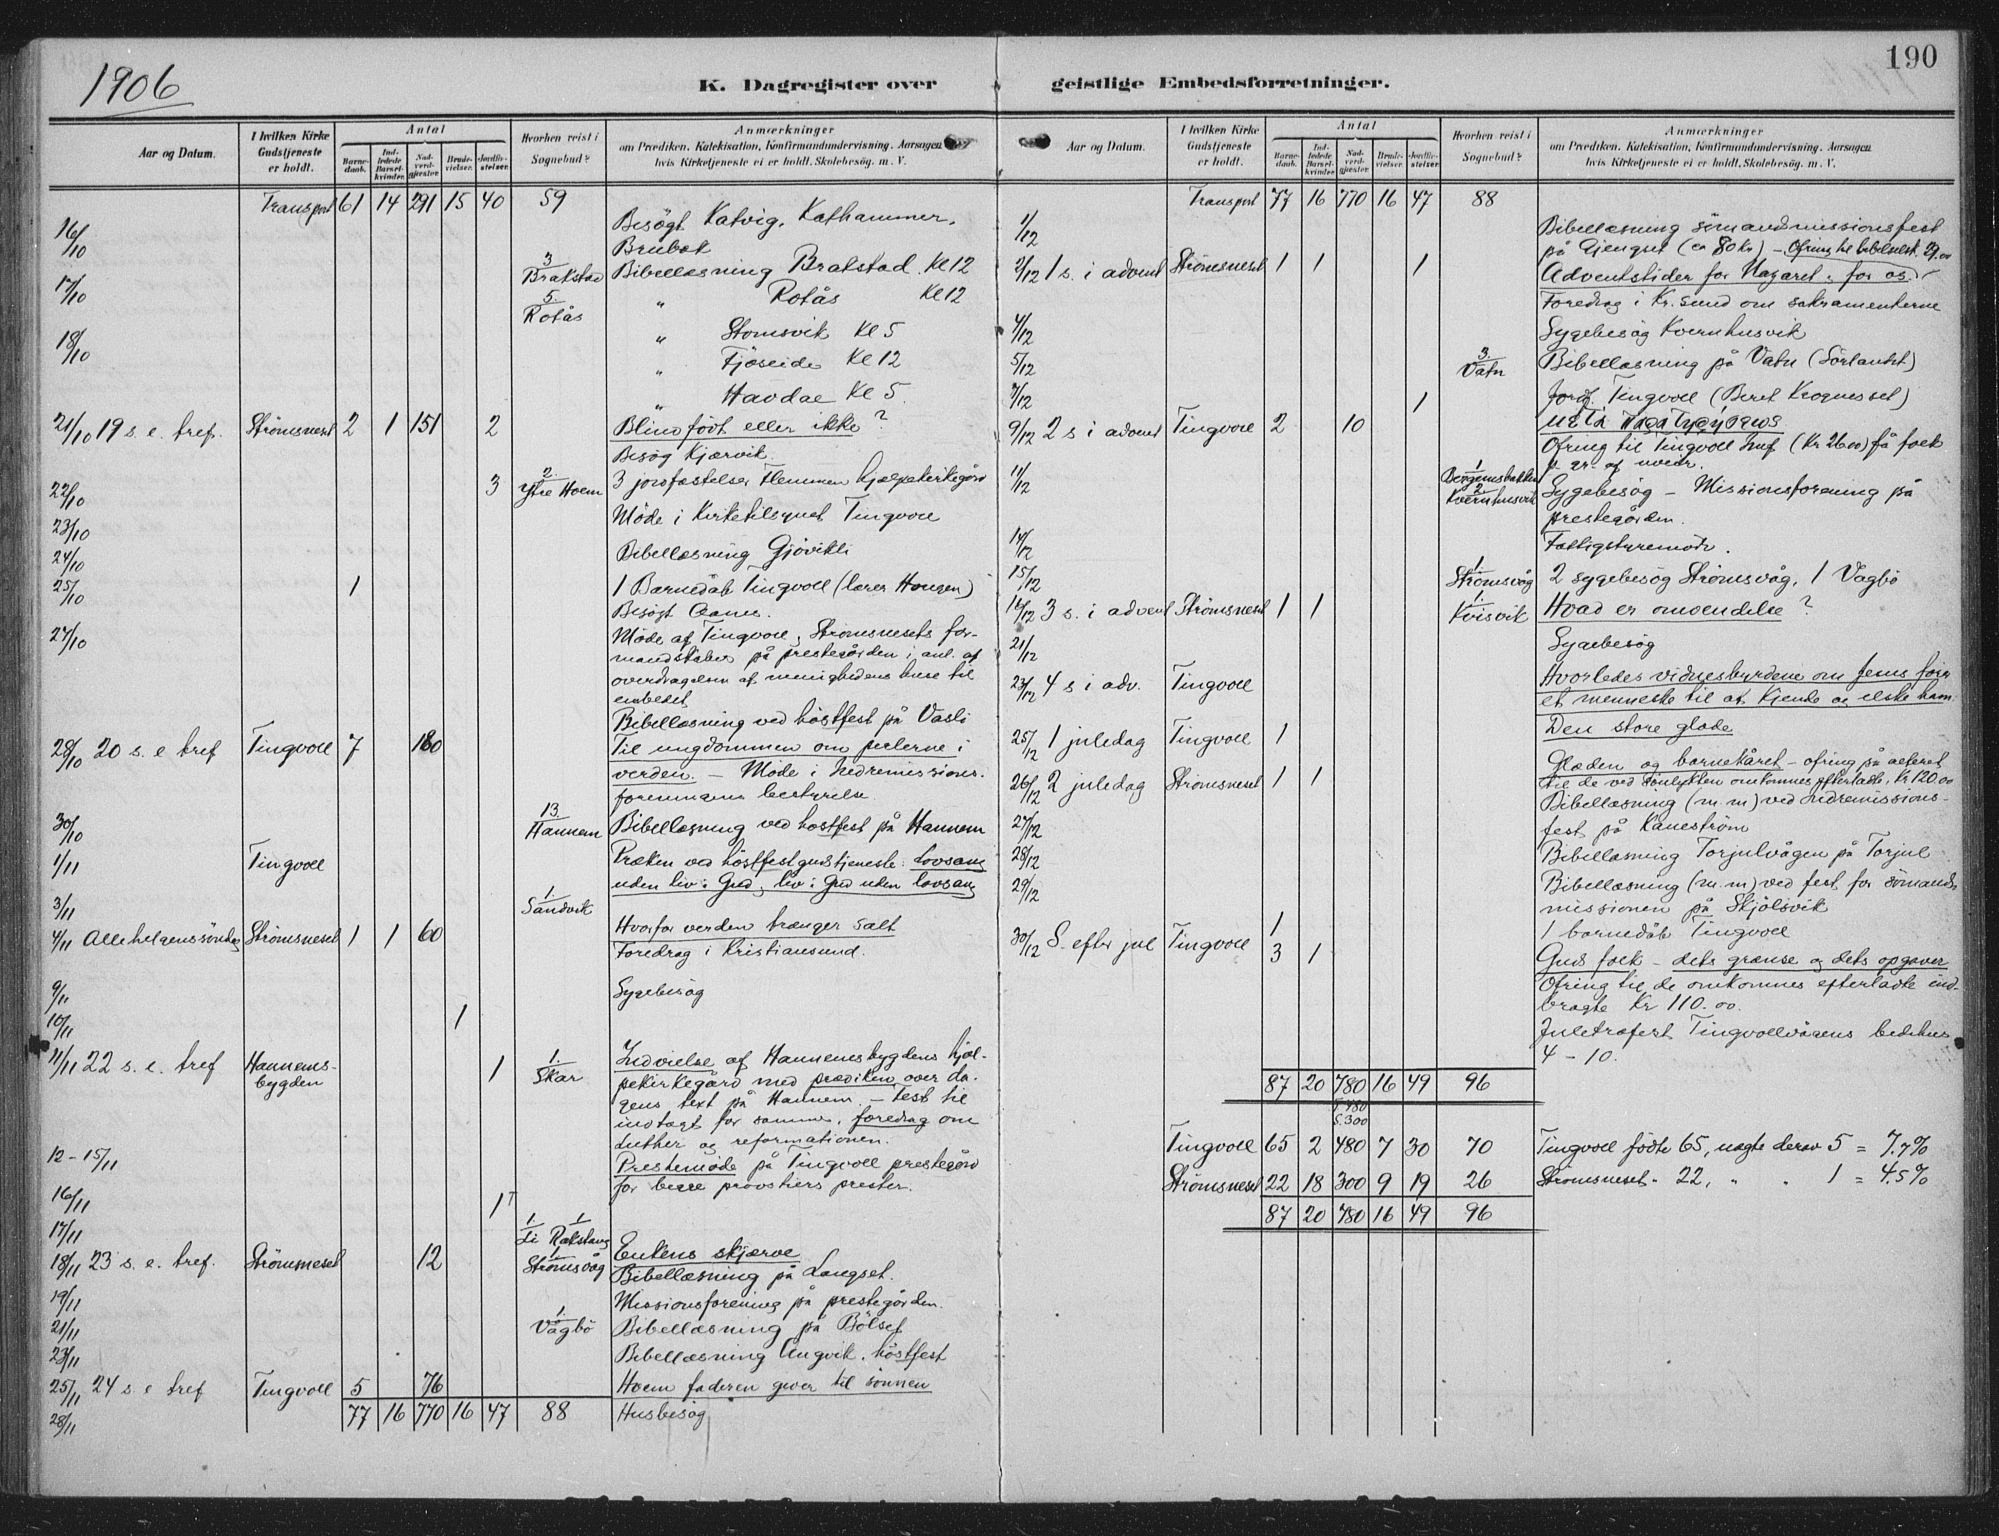 1906
190
K. Dagregister over geistlige Embedsforretninger.
Aar og Datum.
I hvilken Kirke Gudstjeneste er holdt.
Antal
Barnedaab.
Indledede Barselkvinder.
Nadverdgjester.
Brudevielser.
Jordfæstelser.
Hvorhen reist i Sognebud?
Anmærkninger
om Prædiken. Katekisation, Konfirmandundervisning. Aarsagen
hvis Kirketjeneste ei er holdt. Skolebesøg. m. V.
Transport 61 14 291 15 40 59
16/10 Besøgt Katvig, Kathammer,
Brubak
17/10 3 Brakstad Bibellæsning Brakstad. Kl 12
5. Rotås " Rotås Kl 12
18/10 " Stomsvik Kl 5
" Fjøseide Kl 12
" Havdal Kl 5.
21/10 19 s. e. tref. Strømsneset 2 1 151 2 Blindfødt eller ikke?
Besøg Kjørvik.
22/10 3 2. Ytre Hoem 3 jordfæstelser Flemmen hjælpekirkegård
23/10 Møde i Kirketilsynet Tingvoll
24/10 Bibellæsning Gjøvikli
25/10 1 1 Barnedåb Tingvoll (lærer Haugen)
Besøgt Aanes.
27/10 Møde af Tingvoll, Strømsnesets for-
mandskaber på prestegården i anl. af
overdragelsen af menighedens huse til
embedet
Bibellæsning ved høstfest på Vasli
28/10 20 s. e tref Tingvoll 7 180 Til ungdommen om perlerne i
verden. – Møde i Indremissions-
foreningens bestyrelse
30/10 13. Hannem Bibellæsning ved høstfest på Hannem
1/11 Tingvoll Præken ved høstfestgudstjeneste: Lovsang
uden liv i Gud, liv i Gud uden lovsang
3/11 1 Sandvik
4/11 Allehelgenssöndag Strømsneset 1 1 60 Hvorfor verden trænger salt
Foredrag i Kristiansund.
9/11 Sygebesøg
10/11 1
11/11 22 s. e. tref Hannems-
bygden 1 1. Skar Indvielse af Hannemsbygdens hjæl-
pekirkegård med prædiken over da-
gens text på Hannem. – Fest til
indtægt for samme, foredrag om
Luther og reformationen.
12 – 15/11 Prestemøde på Tingvoll prestegård
for begge provstiers prester.
16/11 1
17/11 1 Li 1 Rækstang
18/11 23 s. e. tref. Strømsneset 12 1. Strømsvåg Enkens skjærve
Bibellæsning på Langset.
19/11 Missionsforening på prestegården.
21/11 1. Vågbø Bibellæsning på Bölset
23/11 Bibellæsning Angvik. høstfest
25/11 24 s. e tref Tingvoll 5 76 Hvem faderen giver til sønnen
28/11 77 16 770 16 47 88 Husbesøg
Aar og Datum.
I hvilken Kirke Gudstjeneste er holdt.
Antal
Barnedaab.
Indledede Barselkvinder.
Nadverdgjester.
Brudevielser.
Jordfæstelser.
Hvorhen reist i Sognebud?
Anmærkninger
om Prædiken. Katekisation, Konfirmandundervisning. Aarsagen
hvis Kirketjeneste ei er holdt. Skolebesög. m. V.
Transport 77 16 770 16 47 88
1/12 Bibellæsning sömandsmissionsfest
på Gjengset (ca 80 kr) – Ofring til bibelselsk. 29.00
2/12 1 s. i advent Strømsneset 1 1 1 Adventstider for Nazaret, for os.
Foredrag i Kr. sund om sakramenterne
4/12 Sygebesøg Kvernhusvik
5/12 3. Vatn Bibellæsning på Vatn (Sørlandet)
7/12 1 Jordf. Tingvoll (Beret Krogneset)
9/12 2 s i advent Tingvoll 2 10
Ofring til Tingvoll Imf (Kr 26.00) få folk
p. gr. af uveir.
11/12 1 Bergemsbakken 2 Kvernhusvik Sygebesøg – Missionsforening på
prestegården.
14/12 Fattigstyremøde.
15/12 1 Strømsvåg 2 sygebesøg Strømsvåg, 1 Vagbø
16/12 3 s. i advent Strømsneset 1 1 1. Kvisvik Hvad er omvendelse?
21/12 Sygebesøg
23/12 4 s i adv. Tingvoll Hvorledes vidnesbyrdene om Jesus fører
et menneske til at kjende og elske ham
25/12 1 juledag Tingvoll 1 Den store glæde
26/12 2 juledag Strømsneset 1 1 Glæden og barnekåret – ofring på alteret
til de ved omkomnes efterladte, Kr 120.00
27/12 Bibellæsning (m. m) ved Indremissions-
fest på Kanestrøm
28/12 Bibellæsning Torjulvågen på Torjul
29/12 Bibellæsning (m. m) ved fest for sømands
missionen på Skjölsvik
1 1 barnedåb Tingvoll
30/12 S. efter jul Tingvoll 3 1 Guds folk – dets grænse og dets opgaver
Ofring til de omkomnes efterladte ind-
bragte Kr 110.00.
Juletræfest Tingvollvågens bedehus
4 – 10.
87 20 780 16 49 96
T. 480
S. 300
Tingvoll 65 2 480 7 30 70 Tingvoll födte 65, uægte derav 5 = 7.7%
Strømsneset 22 18 300 9 19 26 Strømsneset " 22, " " 1 = 4.5%
87 20 780 16 49 96